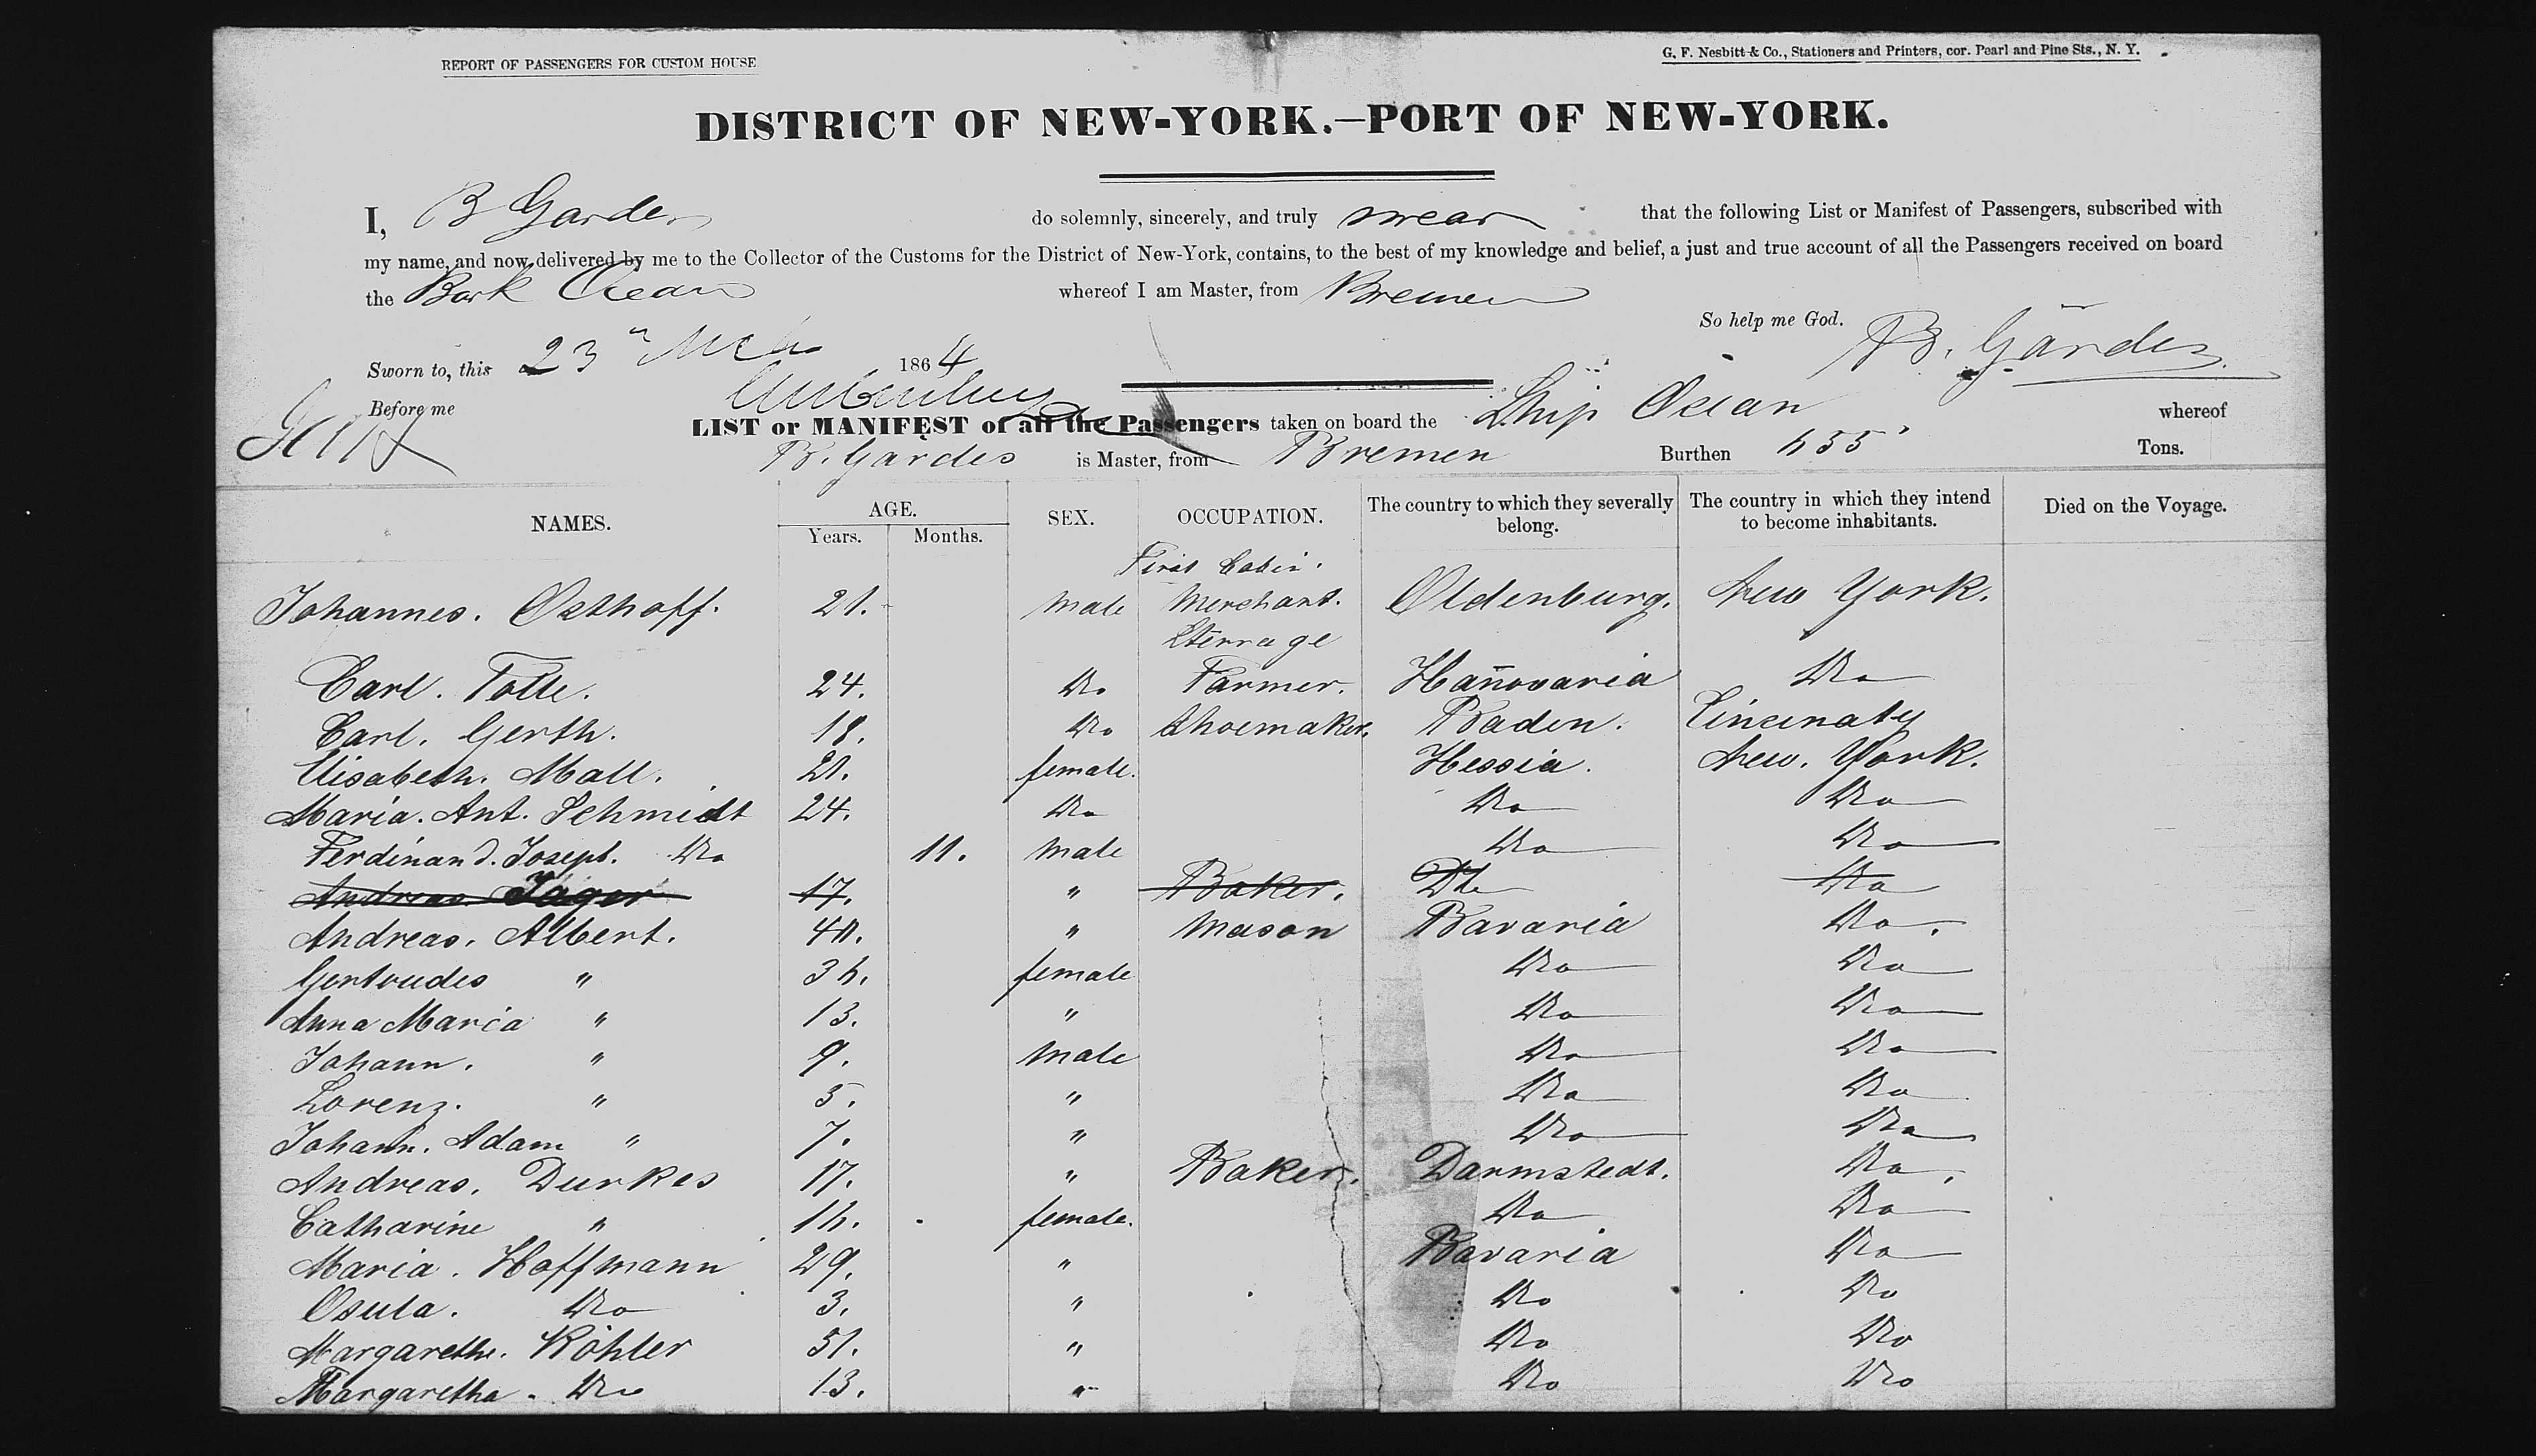 REPORT OF PASSENGERS FOR CUSTOM HOUSE
G. F. Nesbitt & Co., Stationers and Printers, cor. Pearl and Pine Sts., N. Y.
DISTRICT OF NEW-YORK.—PORT OF NEW-YORK.
I, B Gardes do solemnly, sincerely, and truly swear that the following List or Manifest of Passengers, subscribed with
my name, and now delivered by me to the Collector of the Customs for the District of New-York, contains, to the best of my knowledge and belief, a just and true account of all the Passengers received on board
the Bark Ocean whereof I am Master, from Bremen
So help me God. B. Gardes
Sworn to, this 23 Mch 1864
Before me
LIST or MANIFEST of all the Passengers taken on board the Ship Ocean whereof
B. Gardes is Master, from Bremen Burthen 455 Tons.
NAMES. AGE. Years. Months. SEX. OCCUPATION. The country to which they severally belong. The country in which they intend to become inhabitants. Died on the Voyage.
First Cabin.
Johannes. Osthoff. 21. male Merchant. Oldenburg. New York.
Sterrage
Carl. Tolle. 24. Do Farmer. Hannovaria Do
Carl. Gerth. 18. Do Shoemaker. Baden. Cincinaty
Elisabeth. Mall. 21. female. Hessia. New. York.
Maria. Ant. Schmidt 24. Do Do Do
Ferdinand. Joseph. Do 11. male Do Do
Andreas Jager 17. " Baker. Do
Andreas. Albert. 40. " Mason Bavaria Do.
Gertrudes " 34. female Do Do
Anna Maria " 13. " Do Do
Johann. " 9. male Do Do
Lorenz. " 5. " Do Do
Johann. Adam " 7. " Do Do
Andreas. Durkes 17. " Baker. Darmstedt. Do.
Catharine " 14. female. Do Do
Maria. Hoffmann 29. " Bavaria Do
Osula. Do 3. " Do Do
Margarethe. Köhler 51. " Do Do
Margaretha. Do 13. " Do Do